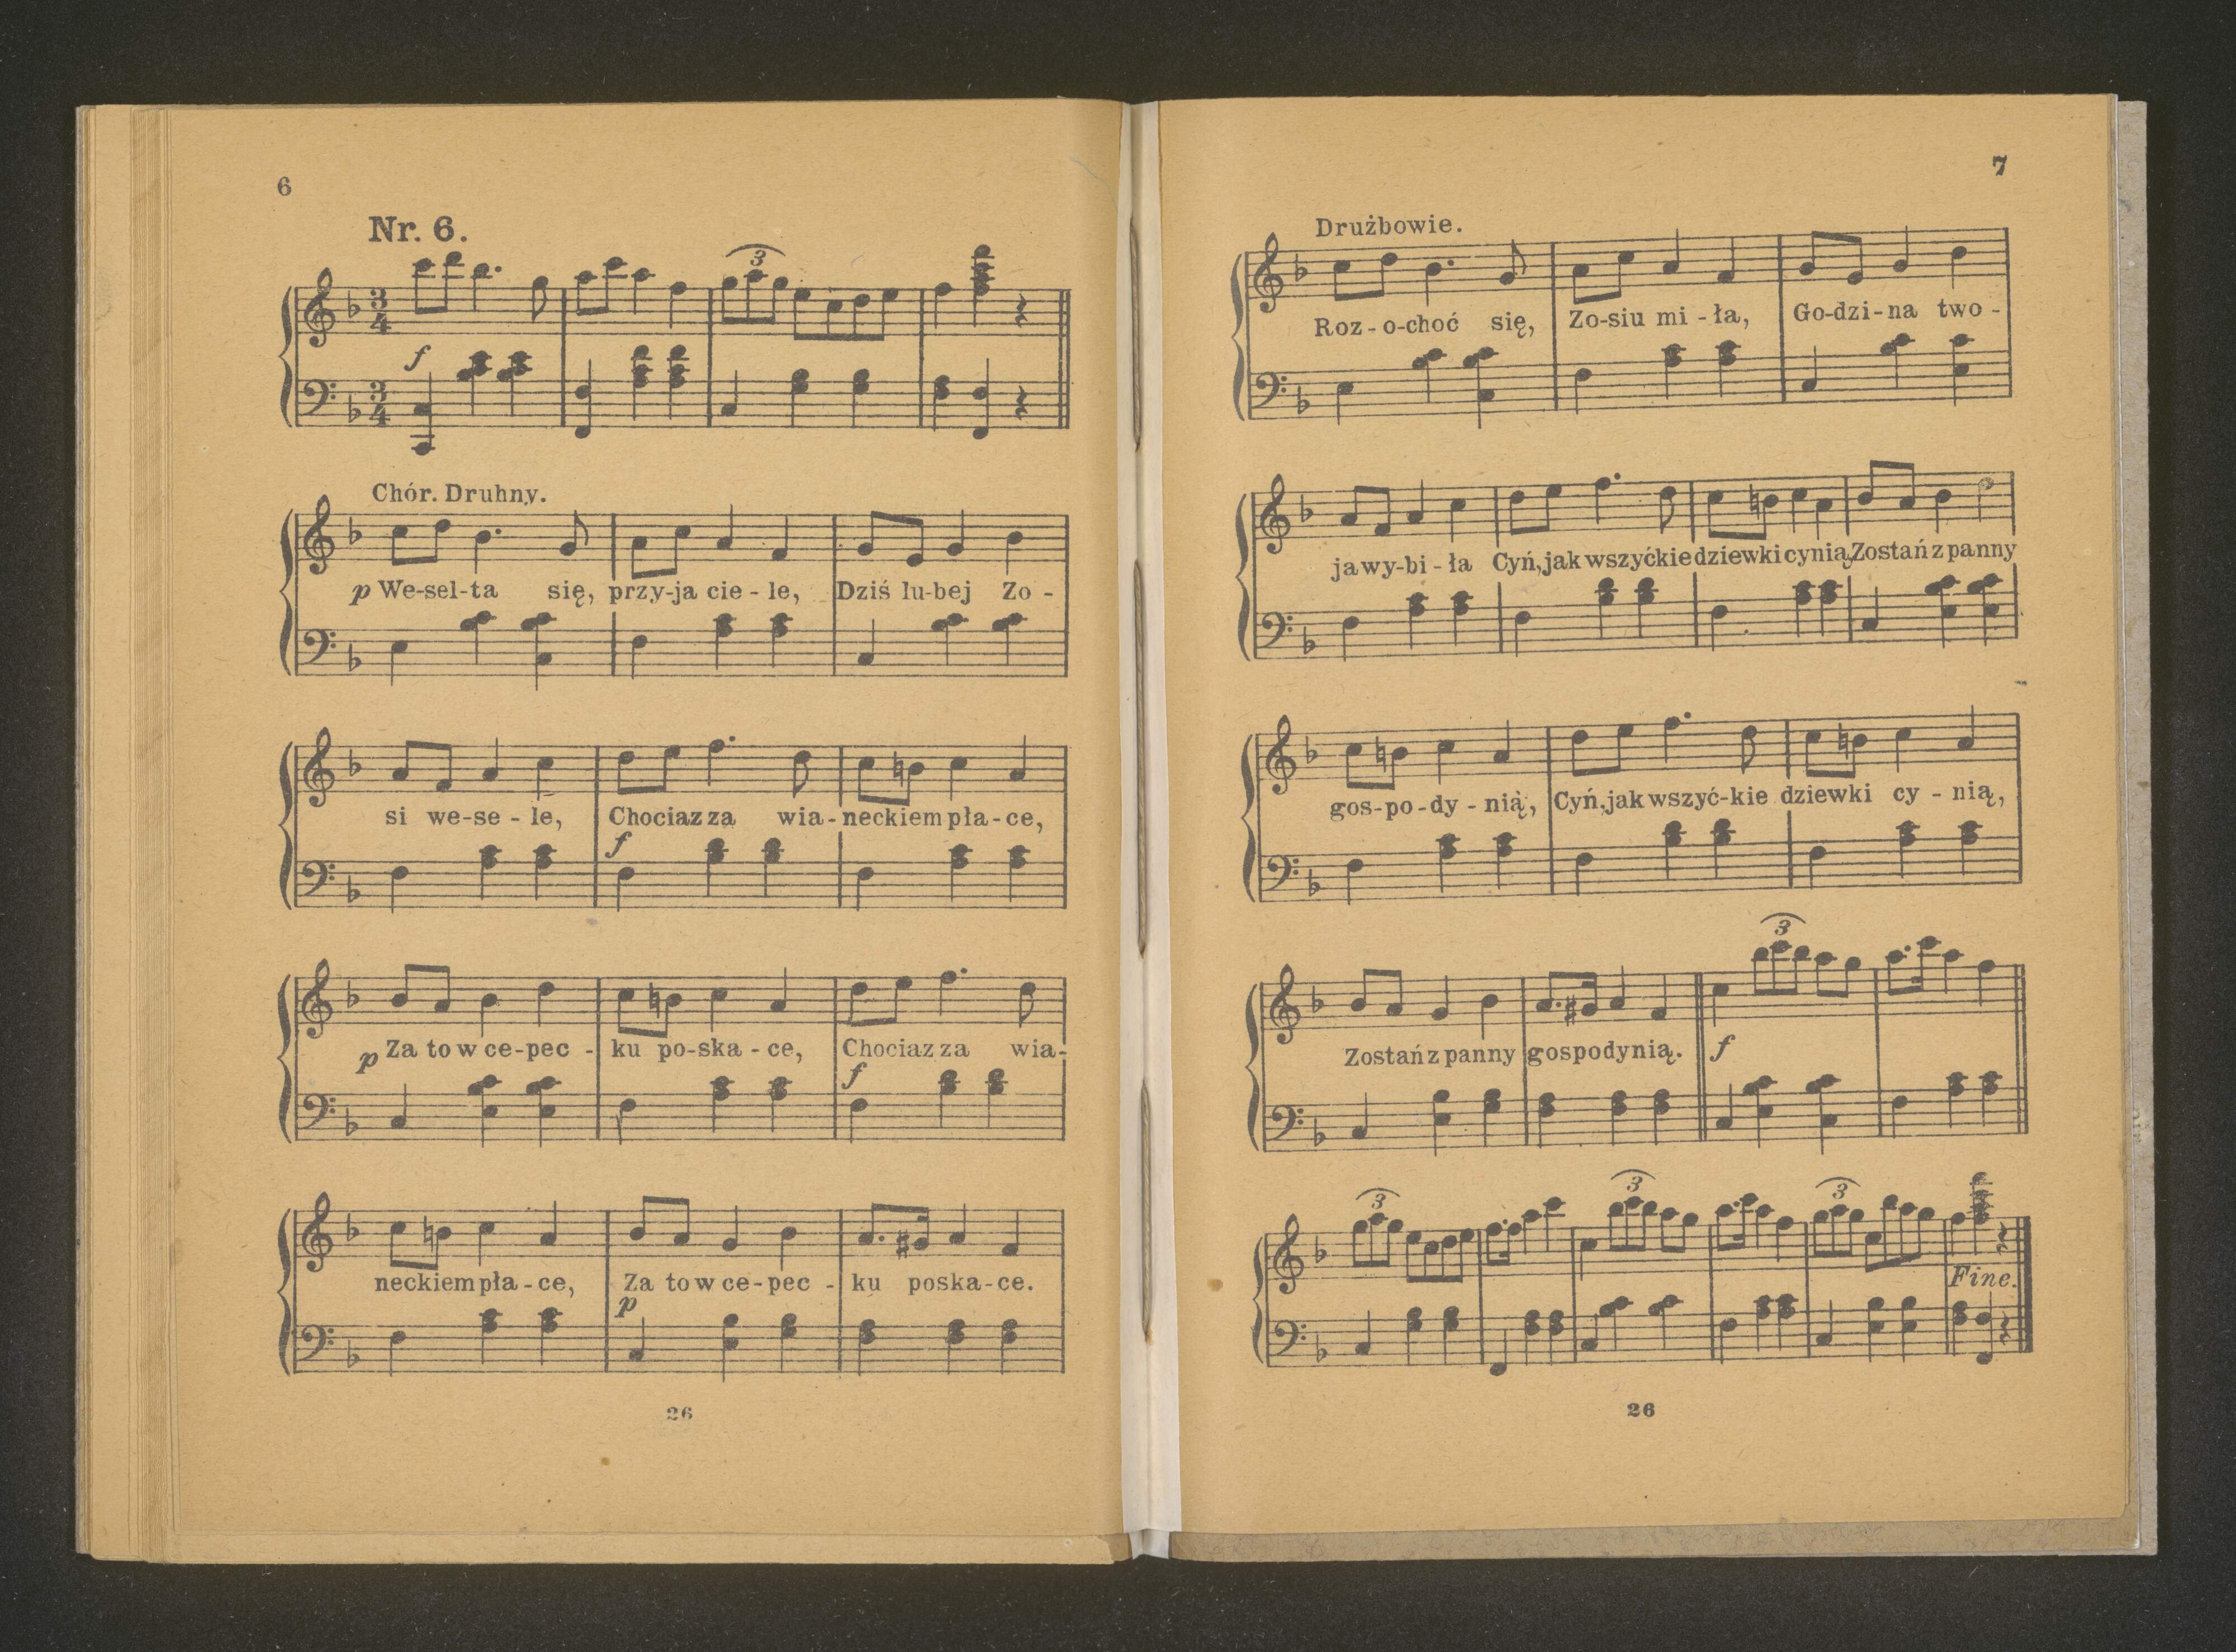 6
Nr. 6.
3
3
4
f
3
4
Chór. Druhny.
p We-sel-ta się, przy-ja cie-le, Dziś lu-bej Zo-
si we-se-le, Chociaz za wia-neckiem pła-ce,
f
p Za to w ce-pec-ku po-ska-ce, Chociaz za wia-
f
neckiem pła-ce, Za to w ce-pec-ku poska-ce.
p
26
7
Drużbowie.
Roz-o-choć się, Zo-siu mi-ła, Go-dzi-na two-
ja wy-bi-ła Cyń, jak wszyćkie dziewki cynią, Zostań z panny
gos-po-dy-nią, Cyń, jak wszyć-kie dziewki cy-nią,
3
Zostań z panny gospodynią. f
3 3 3
Fine.
26